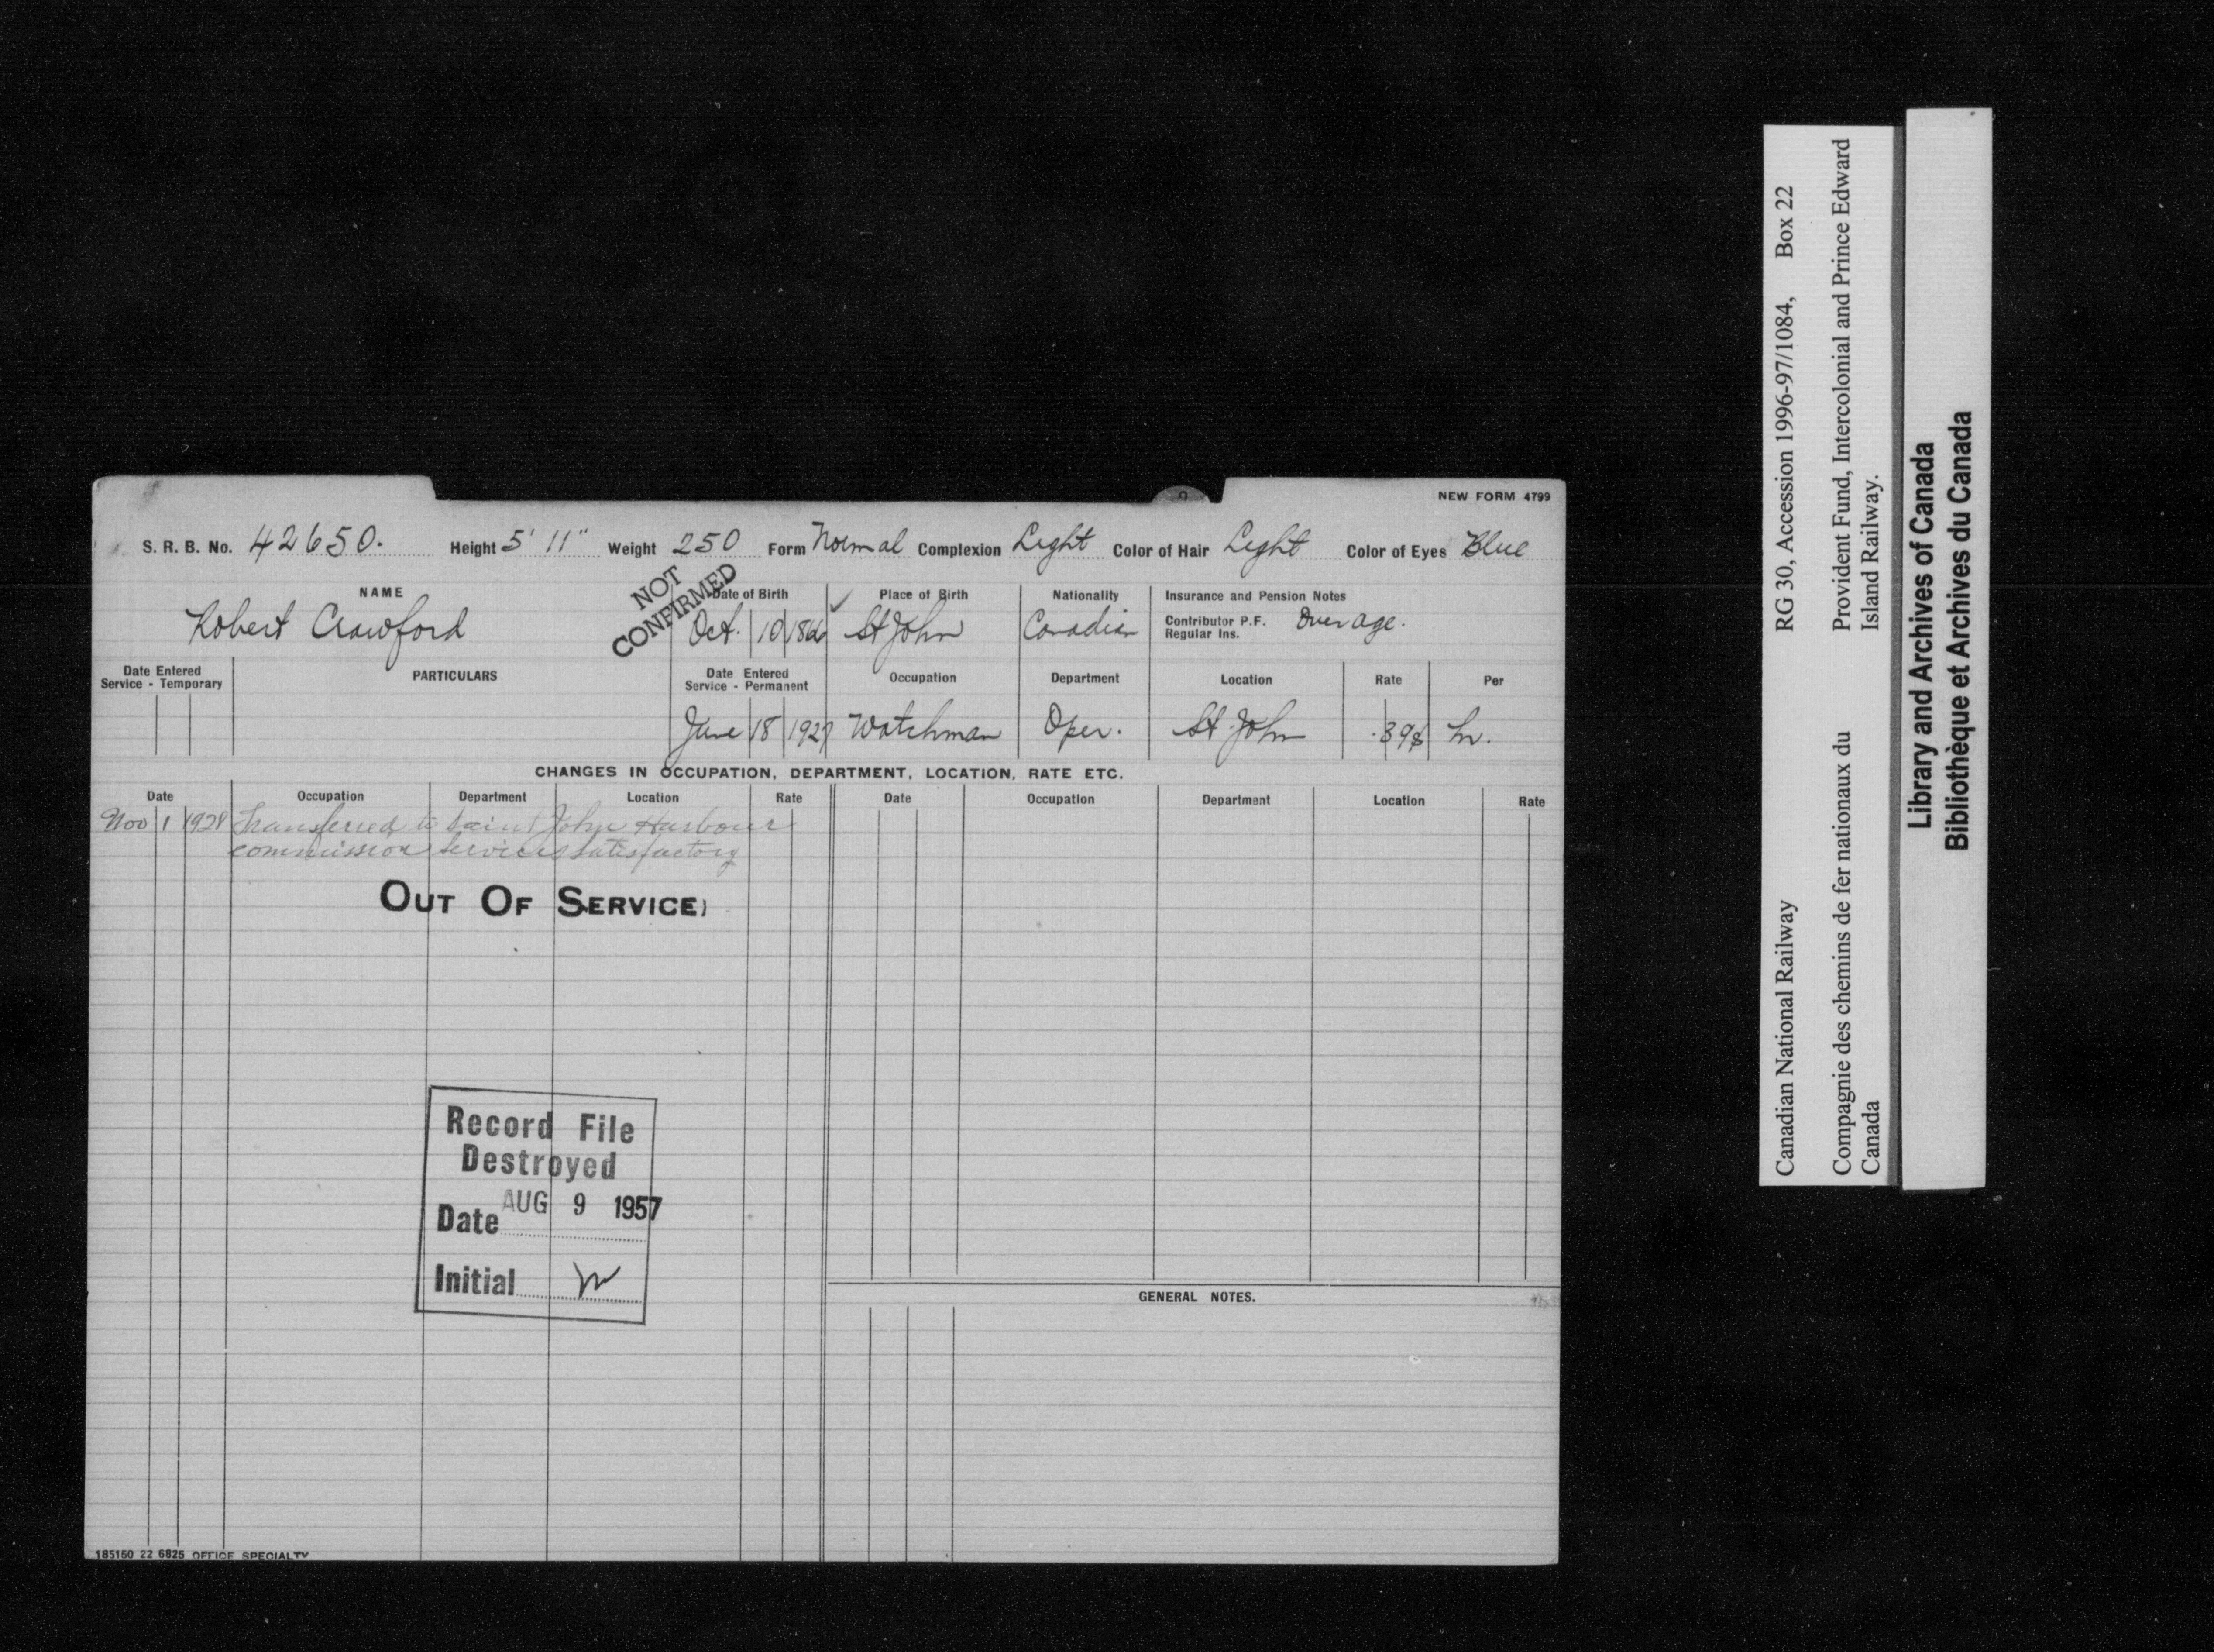 NEW FORM 4799
S. R. B. No. 42650. Height 5' 11" Weight 250 Form Normal Complexion Light Color of Hair Light Color of Eyes Blue
NOT CONFIRMED
NAME Date of Birth Place of Birth Nationality Insurance and Pension Notes
Robert Crawford Oct. 10 1866 St John Canadian Contributor P.F. Regular Ins. Over age.
Date Entered Service - Temporary PARTICULARS Date Entered Service - Permanent Occupation Department Location Rate Per
June 18 1927 Watchman Oper. St. John hr.
CHANGES IN OCCUPATION, DEPARTMENT, LOCATION, RATE ETC.
Date Occupation Department Location Rate Date Occupation Department Location Rate
Nov 1 1928 Transferred to Saint John Harbour
commission services satisfactory
OUT OF SERVICE
Record File
Destroyed
Date AUG 9 1957
Initial
GENERAL NOTES.
185150 22 6825 OFFICE SPECIALTY
Canadian National Railway RG 30, Accession 1996-97/1084, Box 22
Compagnie des chemins de fer nationaux du Provident Fund, Intercolonial and Prince Edward
Canada Island Railway.
Library and Archives of Canada
Bibliothèque et Archives du Canada